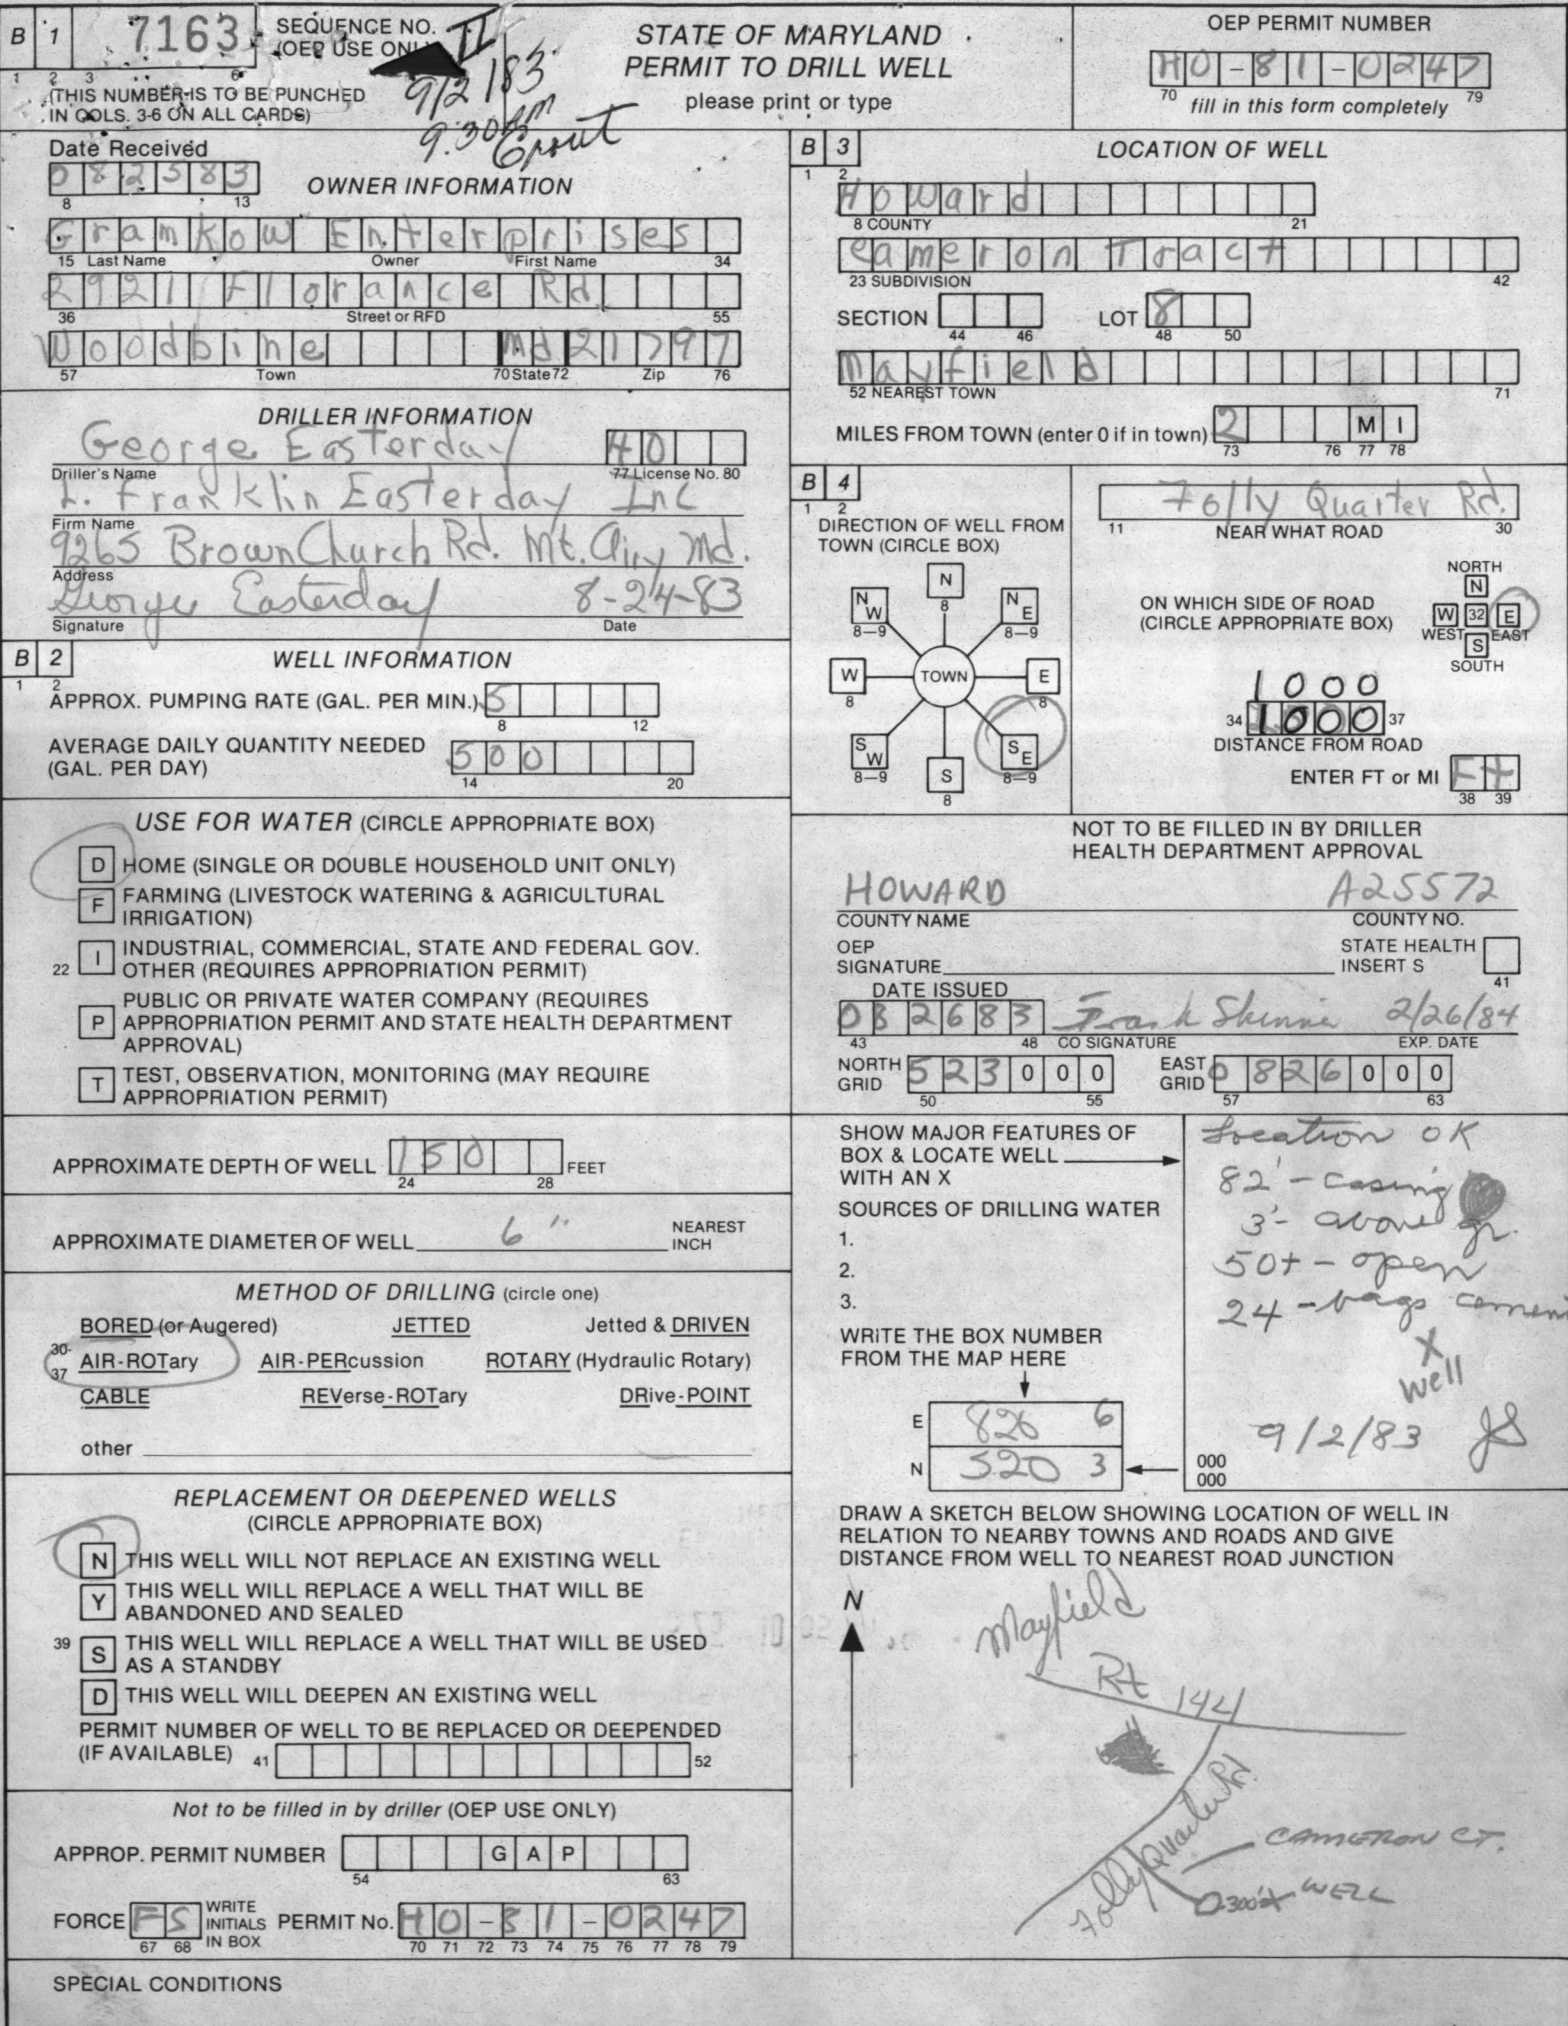 B 1 7163 SEQUENCE NO. (OEP USE ONLY) II
1 2 3 6
(THIS NUMBER IS TO BE PUNCHED
IN COLS. 3-6 ON ALL CARDS)
9/2/83
9:30 AM
Grout
STATE OF MARYLAND
PERMIT TO DRILL WELL
please print or type
OEP PERMIT NUMBER
HO-81-0247
70 79
fill in this form completely
Date Received
082583
8 13
OWNER INFORMATION
Gramkow Enterprises
15 Last Name Owner First Name 34
2921 Florance Rd.
36 Street or RFD 55
Woodbine Md 21797
57 Town 70 State 72 Zip 76
DRILLER INFORMATION
George Easterday 40
Driller's Name 77 License No. 80
L. Franklin Easterday Inc
Firm Name
9265 Brown Church Rd. Mt. Airy Md.
Address
George Easterday 8-24-83
Signature Date
B 2 WELL INFORMATION
1 2
APPROX. PUMPING RATE (GAL. PER MIN.) 5
8 12
AVERAGE DAILY QUANTITY NEEDED
(GAL. PER DAY) 500
14 20
USE FOR WATER (CIRCLE APPROPRIATE BOX)
D HOME (SINGLE OR DOUBLE HOUSEHOLD UNIT ONLY)
F FARMING (LIVESTOCK WATERING & AGRICULTURAL
IRRIGATION)
22 I INDUSTRIAL, COMMERCIAL, STATE AND FEDERAL GOV.
OTHER (REQUIRES APPROPRIATION PERMIT)
P PUBLIC OR PRIVATE WATER COMPANY (REQUIRES
APPROPRIATION PERMIT AND STATE HEALTH DEPARTMENT
APPROVAL)
T TEST, OBSERVATION, MONITORING (MAY REQUIRE
APPROPRIATION PERMIT)
APPROXIMATE DEPTH OF WELL 150 FEET
24 28
APPROXIMATE DIAMETER OF WELL 6" NEAREST
INCH
METHOD OF DRILLING (circle one)
BORED (or Augered) JETTED Jetted & DRIVEN
30-
37 AIR-ROTary AIR-PERcussion ROTARY (Hydraulic Rotary)
CABLE REVerse-ROTary DRive-POINT
other
REPLACEMENT OR DEEPENED WELLS
(CIRCLE APPROPRIATE BOX)
N THIS WELL WILL NOT REPLACE AN EXISTING WELL
Y THIS WELL WILL REPLACE A WELL THAT WILL BE
ABANDONED AND SEALED
39 S THIS WELL WILL REPLACE A WELL THAT WILL BE USED
AS A STANDBY
D THIS WELL WILL DEEPEN AN EXISTING WELL
PERMIT NUMBER OF WELL TO BE REPLACED OR DEEPENDED
(IF AVAILABLE) 41 52
Not to be filled in by driller (OEP USE ONLY)
APPROP. PERMIT NUMBER G A P
54 63
FORCE FS WRITE
INITIALS
IN BOX PERMIT No. HO-81-0247
67 68 70 71 72 73 74 75 76 77 78 79
SPECIAL CONDITIONS
B 3 LOCATION OF WELL
1 2
Howard
8 COUNTY 21
Cameron Tract
23 SUBDIVISION 42
SECTION LOT 8
44 46 48 50
Mayfield
52 NEAREST TOWN 71
MILES FROM TOWN (enter 0 if in town) 2 M I
73 76 77 78
B 4
1 2
DIRECTION OF WELL FROM
TOWN (CIRCLE BOX)
N
8
NW
8—9
NE
8—9
W
8
TOWN
E
8
SW
8—9
S
8
SE
8—9
Folly Quarter Rd.
11 NEAR WHAT ROAD 30
ON WHICH SIDE OF ROAD
(CIRCLE APPROPRIATE BOX)
NORTH
N
W 32 E
WEST EAST
S
SOUTH
1000
34 1000 37
DISTANCE FROM ROAD
ENTER FT or MI Ft
38 39
NOT TO BE FILLED IN BY DRILLER
HEALTH DEPARTMENT APPROVAL
HOWARD A25572
COUNTY NAME COUNTY NO.
OEP
SIGNATURE STATE HEALTH
INSERT S
41
DATE ISSUED
082683 Frank Skinner 2/26/84
43 48 CO SIGNATURE EXP. DATE
NORTH
GRID 523000 EAST
GRID 0826000
50 55 57 63
SHOW MAJOR FEATURES OF
BOX & LOCATE WELL
WITH AN X
SOURCES OF DRILLING WATER
1.
2.
3.
WRITE THE BOX NUMBER
FROM THE MAP HERE
E 826 6
N 520 3
000
000
Location OK
82' - casing
3' - above gr.
50+ - open
24 - bags cement
X
Well
9/2/83 JS
DRAW A SKETCH BELOW SHOWING LOCATION OF WELL IN
RELATION TO NEARBY TOWNS AND ROADS AND GIVE
DISTANCE FROM WELL TO NEAREST ROAD JUNCTION
N
Mayfield
Rt 144
Folly Quarter Rd.
CAMERON CT.
300' X WELL